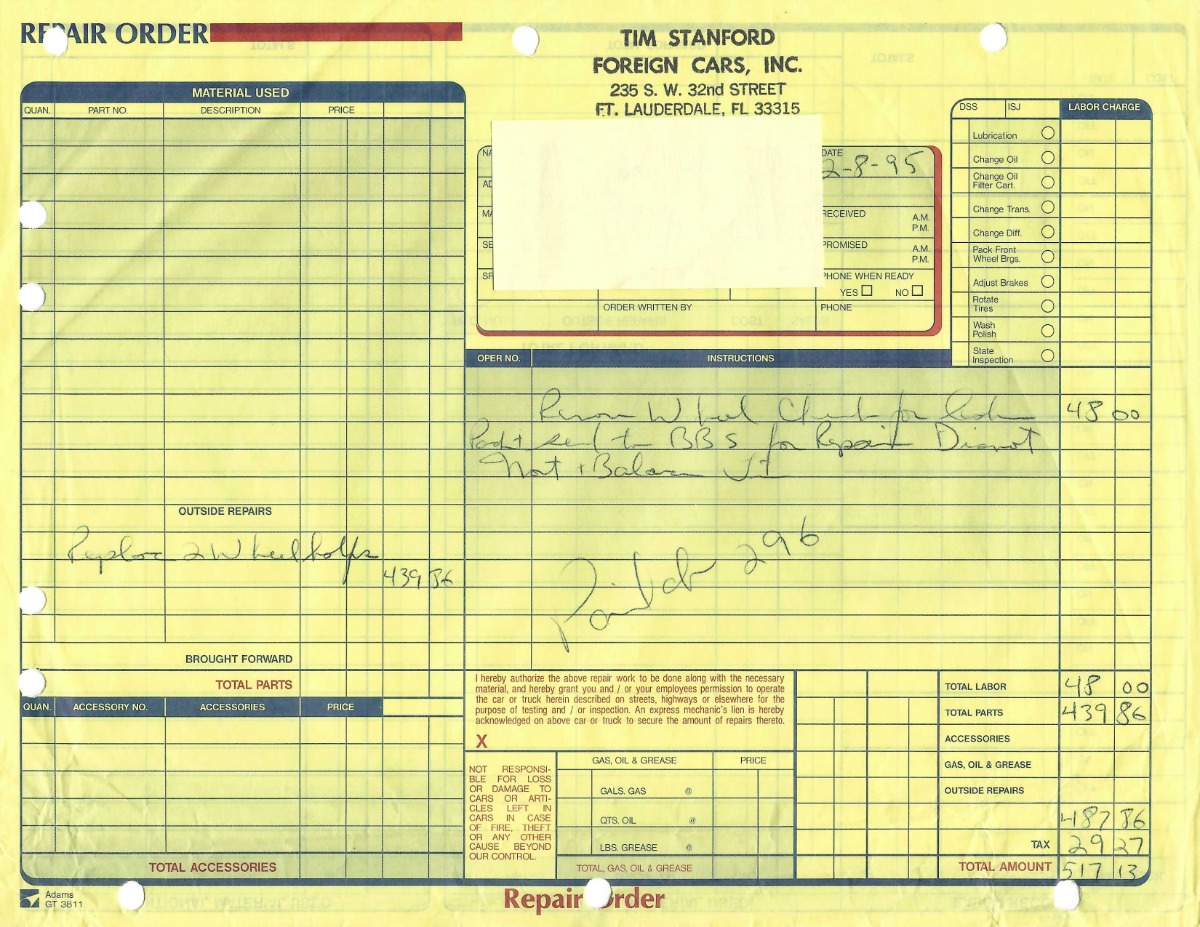 REPAIR ORDER
TIM STANFORD
FOREIGN CARS, INC.
235 S. W. 32nd STREET
FT. LAUDERDALE, FL 33315
MATERIAL USED
QUAN. PART NO. DESCRIPTION PRICE
DATE
2-8-95
RECEIVED A.M. P.M.
PROMISED A.M. P.M.
PHONE WHEN READY
YES NO
ORDER WRITTEN BY PHONE
DSS ISJ LABOR CHARGE
Lubrication
Change Oil
Change Oil
Filter Cart.
Change Trans.
Change Diff.
Pack Front
Wheel Brgs.
Adjust Brakes
Rotate
Tires
Wash
Polish
State
Inspection
OPER NO. INSTRUCTIONS
Wheel Check for 48 00
sent to BBS for Repair
+ Balance It
OUTSIDE REPAIRS
Replace 2 Wheel
439 86
296
BROUGHT FORWARD
TOTAL PARTS
QUAN. ACCESSORY NO. ACCESSORIES PRICE
TOTAL ACCESSORIES
I hereby authorize the above repair work to be done along with the necessary
material, and hereby grant you and / or your employees permission to operate
the car or truck herein described on streets, highways or elsewhere for the
purpose of testing and / or inspection. An express mechanic's lien is hereby
acknowledged on above car or truck to secure the amount of repairs thereto.
X
NOT RESPONSI-
BLE FOR LOSS
OR DAMAGE TO
CARS OR ARTI-
CLES LEFT IN
CARS IN CASE
OF FIRE, THEFT
OR ANY OTHER
CAUSE BEYOND
OUR CONTROL.
GAS, OIL & GREASE PRICE
GALS. GAS @
QTS. OIL @
LBS. GREASE @
TOTAL GAS, OIL & GREASE
TOTAL LABOR 48 00
TOTAL PARTS 439 86
ACCESSORIES
GAS, OIL & GREASE
OUTSIDE REPAIRS
487 86
TAX 29 27
TOTAL AMOUNT 517 13
Adams
GT 3811
Repair Order